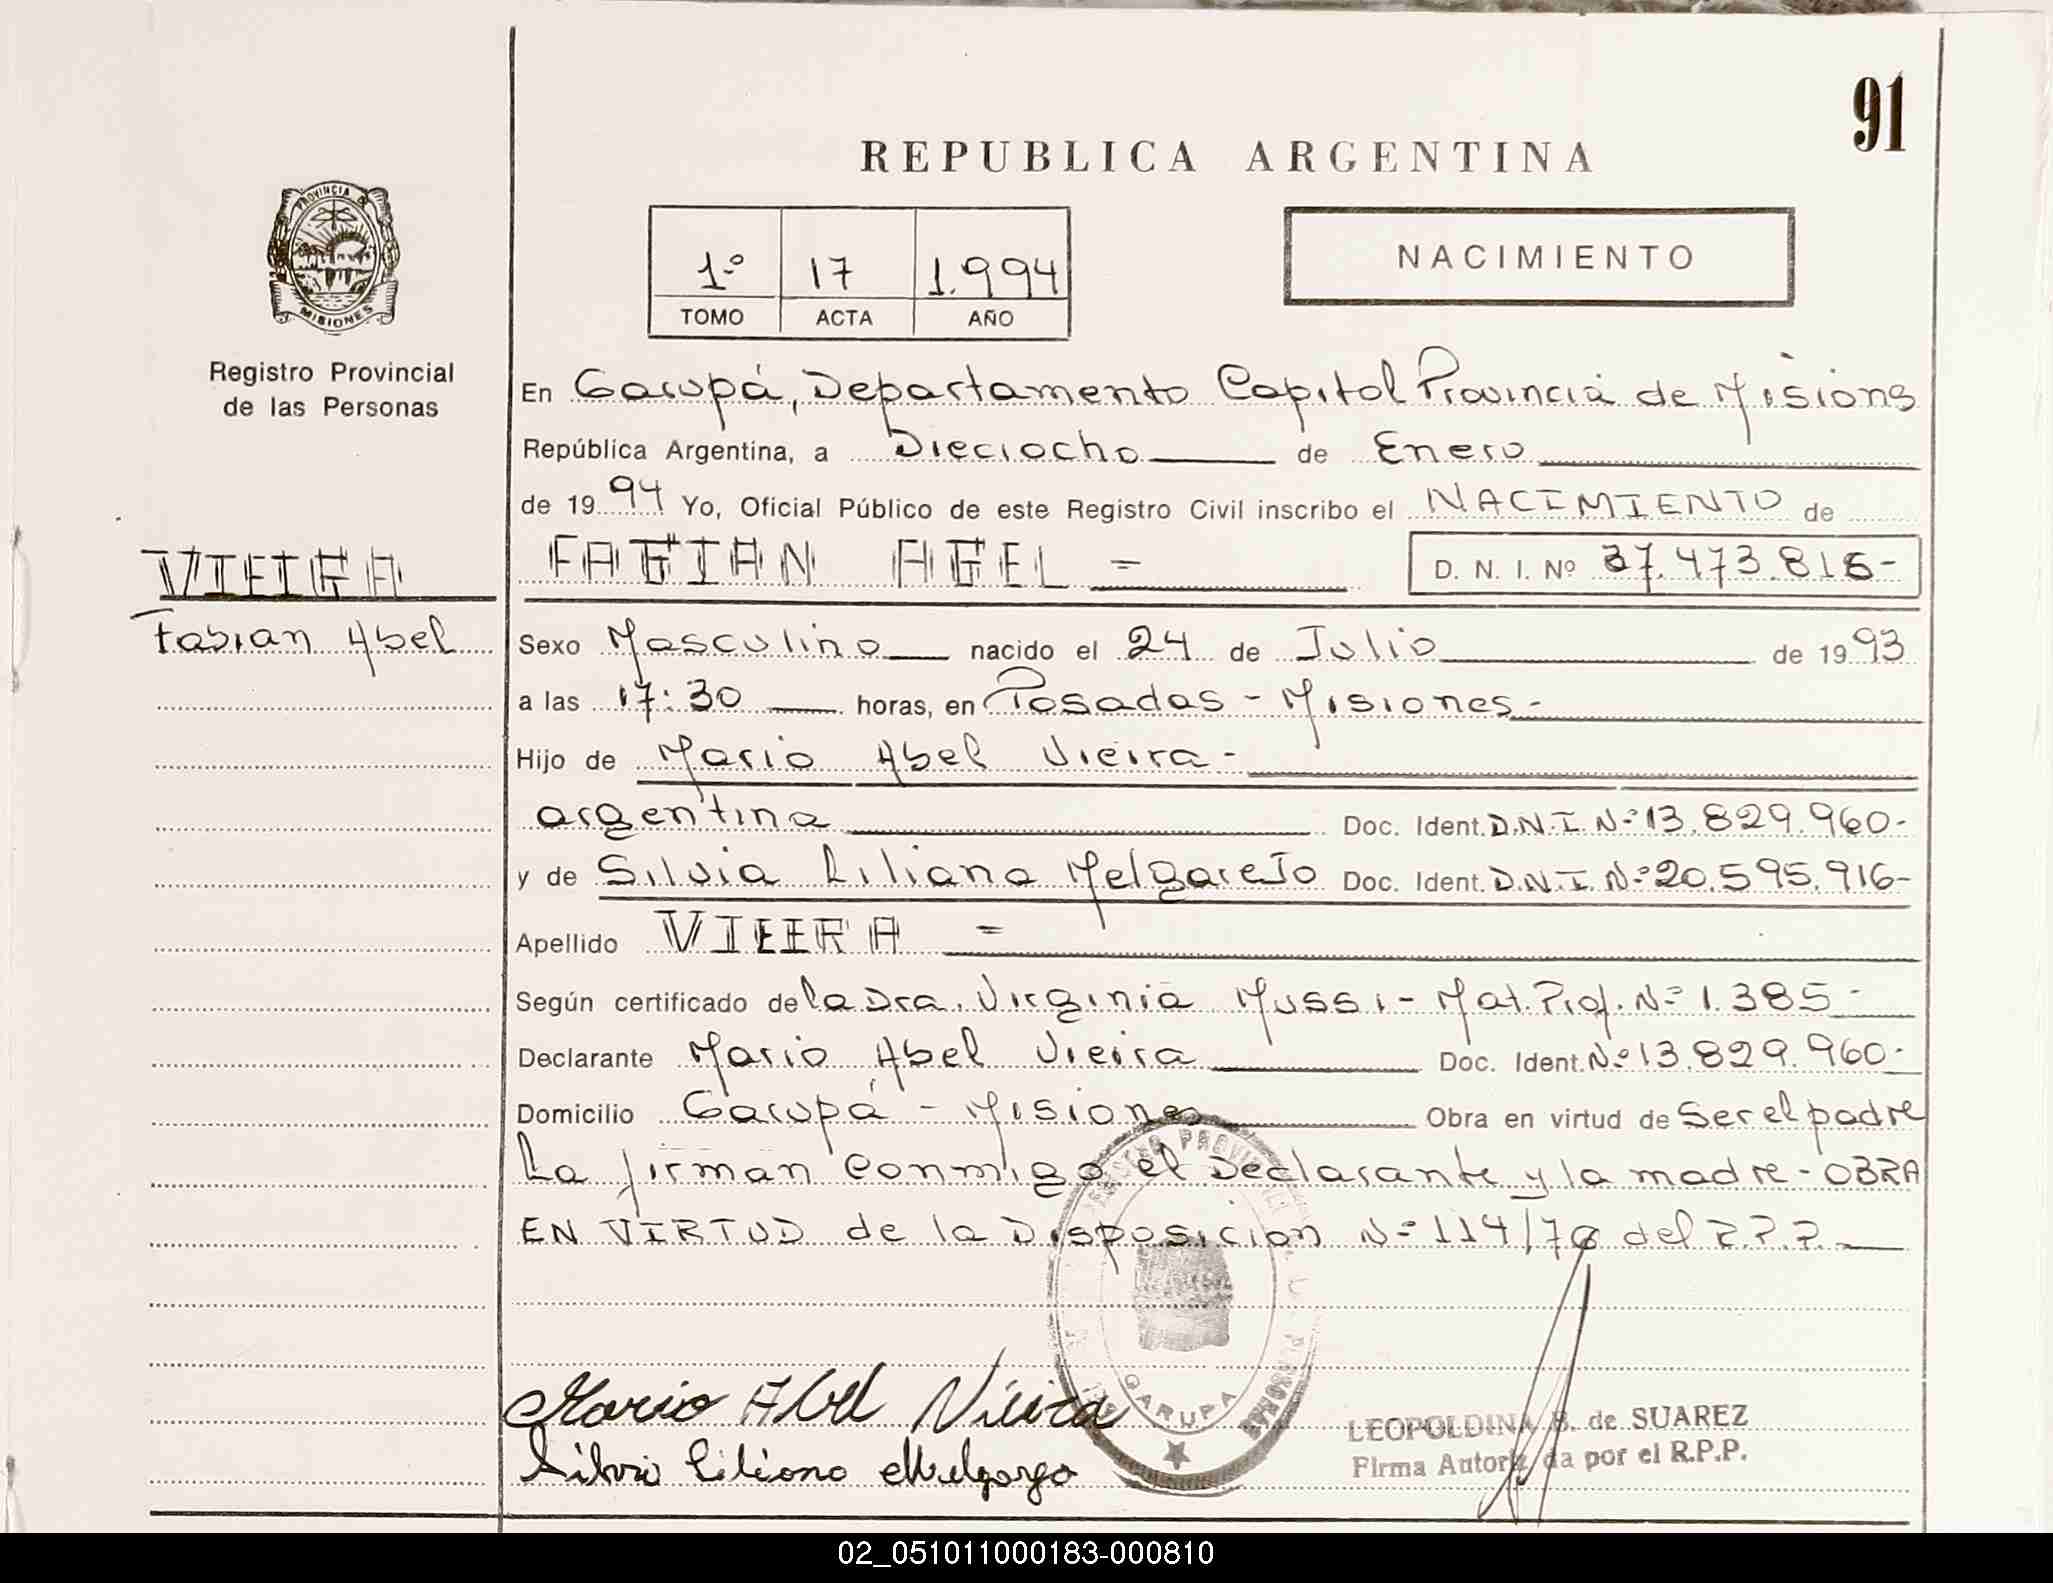 91
REPUBLICA ARGENTINA
PROVINCIA DE
MISIONES
Registro Provincial
de las Personas
1º 17 1.994
TOMO ACTA AÑO
NACIMIENTO
En Garupá, Departamento Capital Provincia de Misions
República Argentina, a Dieciocho de Enero
de 19 94 Yo, Oficial Público de este Registro Civil inscribo el NACIMIENTO de
VIEIRA
FABIAN ABEL = D. N. I. Nº 37.473.816-
Fabian Abel
Sexo Masculino nacido el 24 de Julio de 19 93
a las 17:30 horas, en Posadas - Misiones -
Hijo de Mario Abel Vieira -
argentina Doc. Ident. D.N.I. Nº 13.829.960-
y de Silvia Liliana Melgarejo Doc. Ident. D.N.I. Nº 20.595.916-
Apellido VIEIRA =
Según certificado de la Dra. Virginia Mussi - Mat. Prof. Nº 1.385 -
Declarante Mario Abel Vieira Doc. Ident. Nº 13.829.960-
Domicilio Garupá - Misiones Obra en virtud de Ser el padre
La firman conmigo el Declarante y la madre - OBRA
EN VIRTUD de la Disposicion Nº 114/76 del R.P.P.
GARUPA
Mario Abel Vieira
Silvia Liliana Melgarejo
LEOPOLDINA B. de SUAREZ
Firma Autorizada por el R.P.P.
02_051011000183-000810